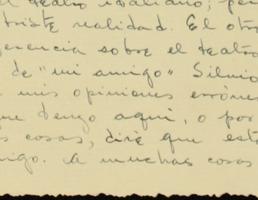 el teatro italiano, per
triste realidad. El otro
erencia sobre el teatro
de "mi amigo" Silvio
mis opiniones erróne
ue tengo aquí, o por
s cosas, diré que est
igo. A muchas cosas